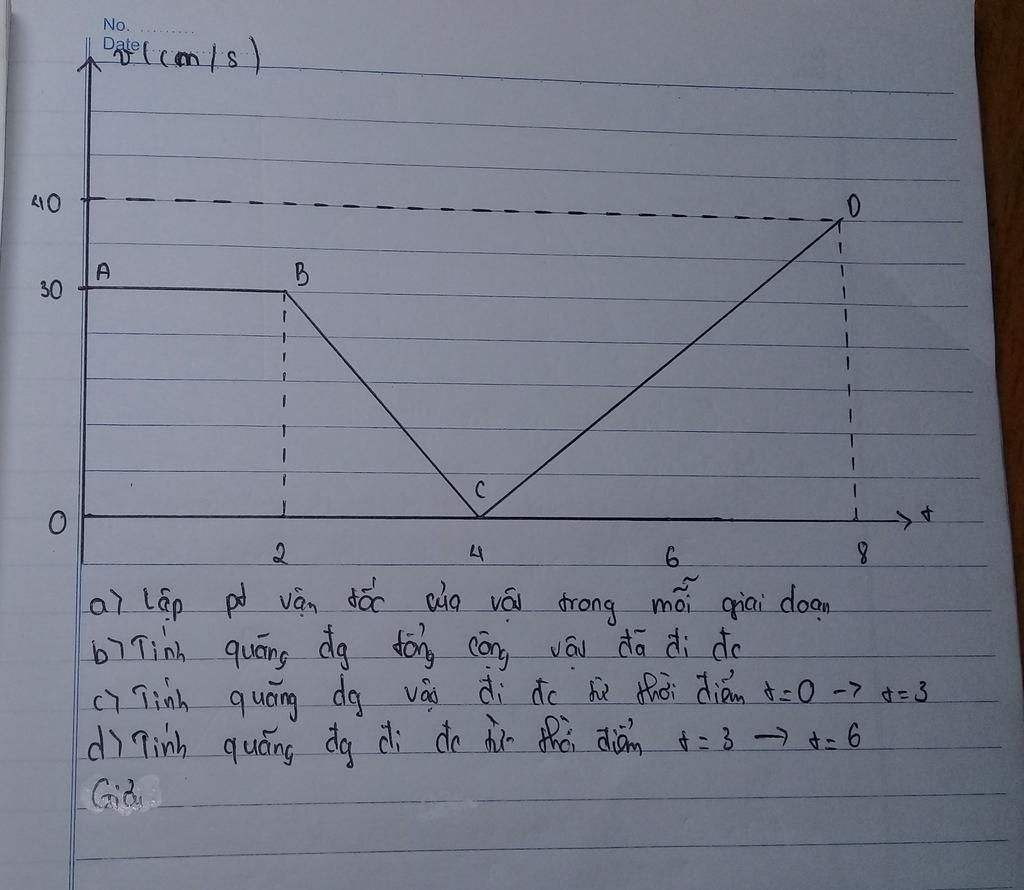 No. .........
Date
v(cm/s)
40
D
30
A
B
C
0
t
2
4
6
8
a) Lập pt vận tốc của vật trong mỗi giai đoạn
b) Tính quãng đg tổng cộng vật đã đi đc
c) Tính quãng đg vật đi đc từ thời điểm t=0 -> t=3
d) Tính quãng đg đi đc từ thời điểm t=3 -> t=6
Giải